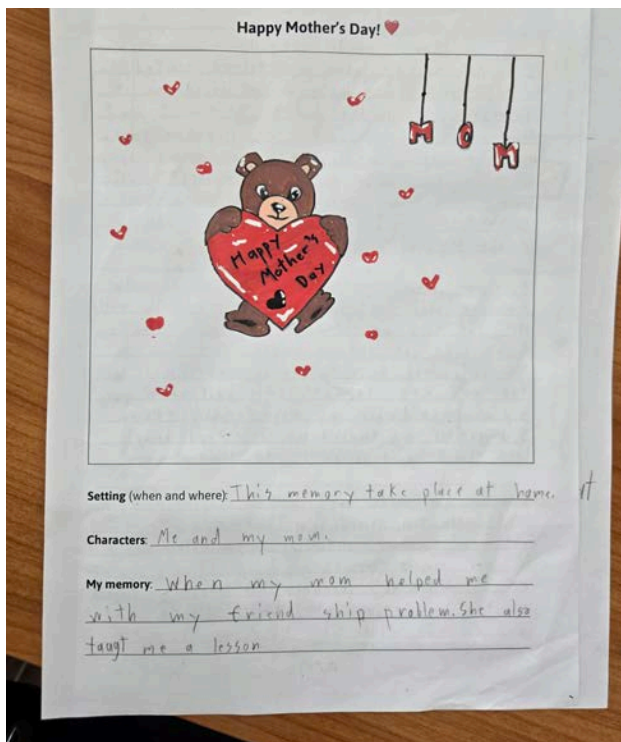 Happy Mother's Day! ❤
MOM
Happy
Mother's
Day
Setting (when and where): This memory take place at home.
Characters: Me and my mom.
My memory: When my mom helped me
with my friend ship problem. She also
taugt me a lesson